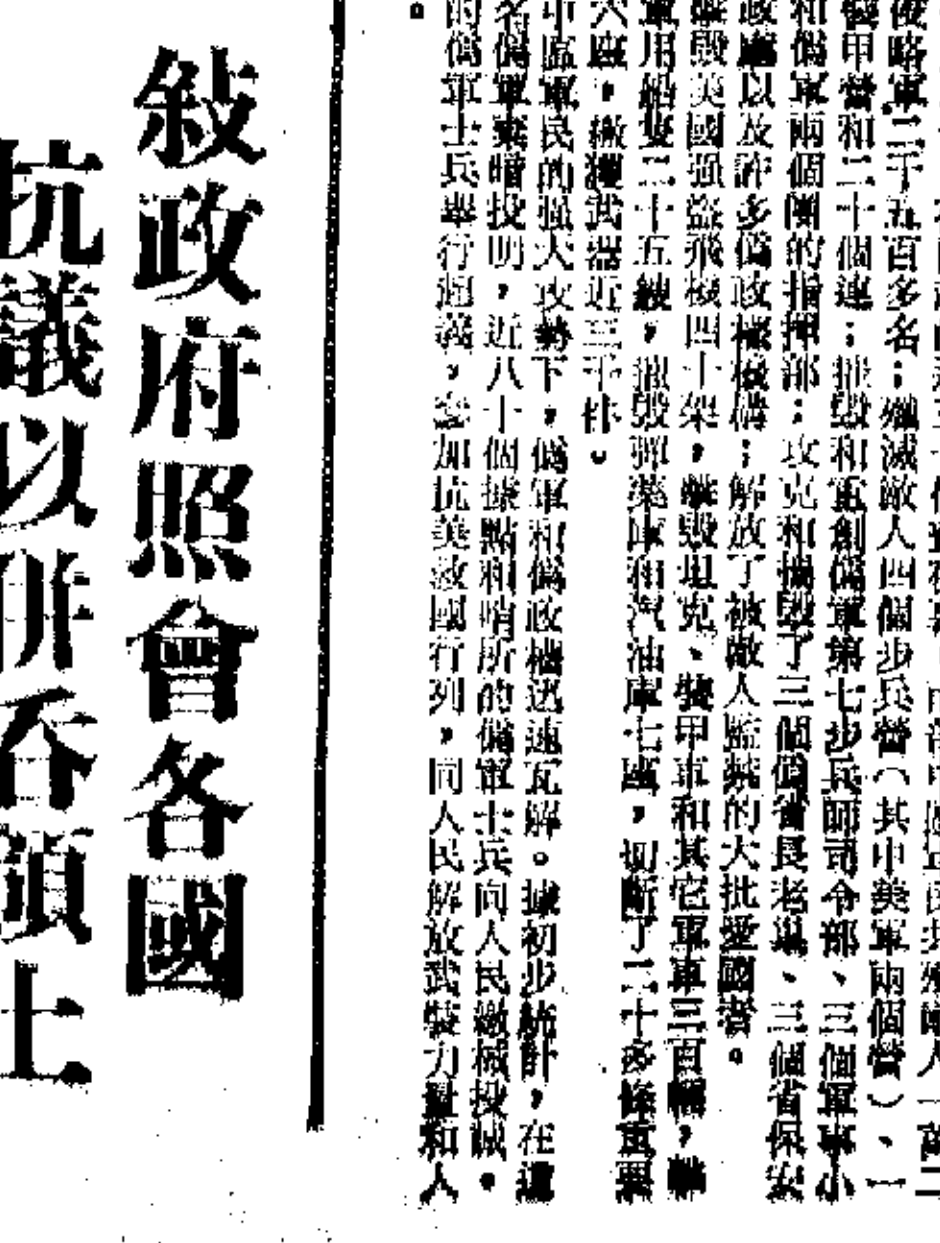 侵略軍二千五百多名；殲滅敵人四個步兵營（其中美軍兩個營）、一
裝甲營和二十個連；摧毀和重創僞軍第七步兵師司令部、三個軍事小
和僞軍兩個團的指揮部；攻克和搗毀了三個僞省長老巢、三個省保安
政廳以及許多僞政權機構；解放了被敵人監禁的大批愛國者。
擊毀美國强盜飛機四十架，擊毀坦克、裝甲車和其它軍車三百輛，擊
軍用船隻二十五艘，摧毀彈藥庫和汽油庫七座，切斷了二十多條重要
六座，繳獲武器近三千件。
中區軍民的强大攻勢下，僞軍和僞政權迅速瓦解。據初步統計，在這
名僞軍棄暗投明，近八十個據點和哨所的僞軍士兵向人民繳械投誠。
的僞軍士兵舉行起義，參加抗美救國行列，同人民解放武裝力量和人
。
敍政府照會各國
抗議以併吞領土